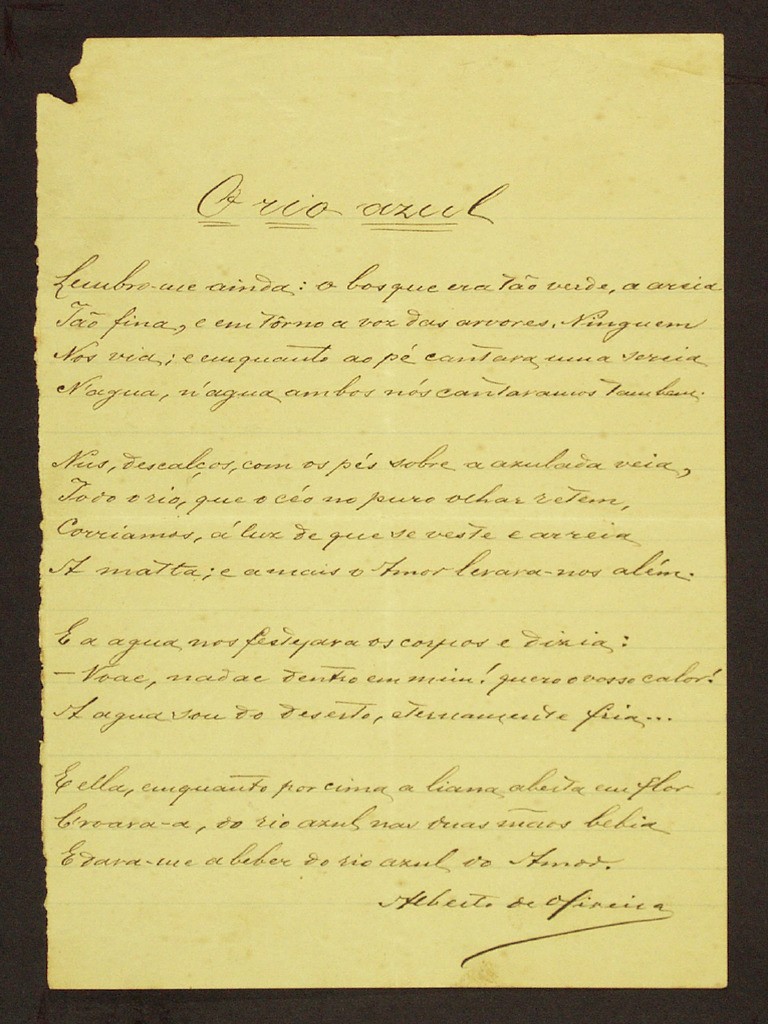 O rio azul
Lembro-me ainda: o bosque era tão verde, a areia
Tão fina, e em tôrno a voz das arvores. Ninguem
Nos via; e emquanto ao pé cantava uma sereia
N'agua, n'agua ambos nós cantavamos tambem.
Nus, descalços, com os pés sobre a azulada veia,
Todo o rio, que o céo no puro olhar retem,
Corriamos, á luz de que se veste e arreia
A matta; e a mais o Amor levava-nos além.
E a agua nos festejava os corpos e dizia:
— Voae, nadae dentro em mim! quero o vosso calor!
A agua sou do deserto, eternamente fria...
E ella, emquanto por cima a liana aberta em flor
C'roava-a, do rio azul nas duas mãos bebia
E dava-me a beber do rio azul do Amor.
Alberto de Oliveira